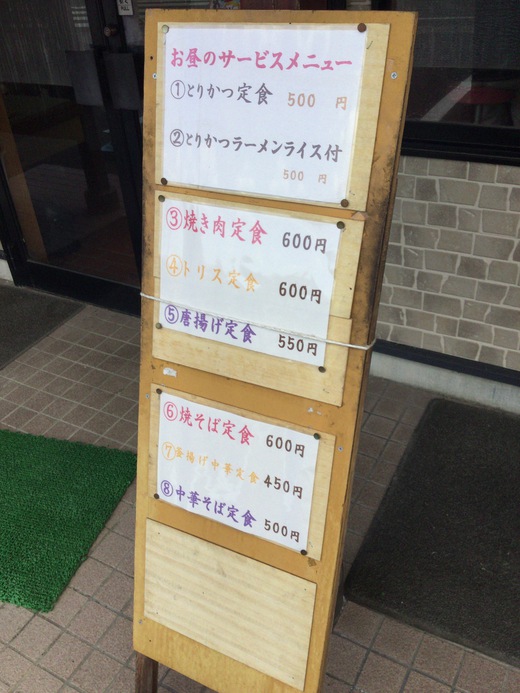 お昼のサービスメニュー
①とりかつ定食 500 円
②とりかつラーメンライス付
500 円
③焼き肉定食 600円
④トリス定食 600円
⑤唐揚げ定食 550円
⑥焼そば定食 600円
⑦釜揚げ中華定食 450円
⑧中華そば定食 500円